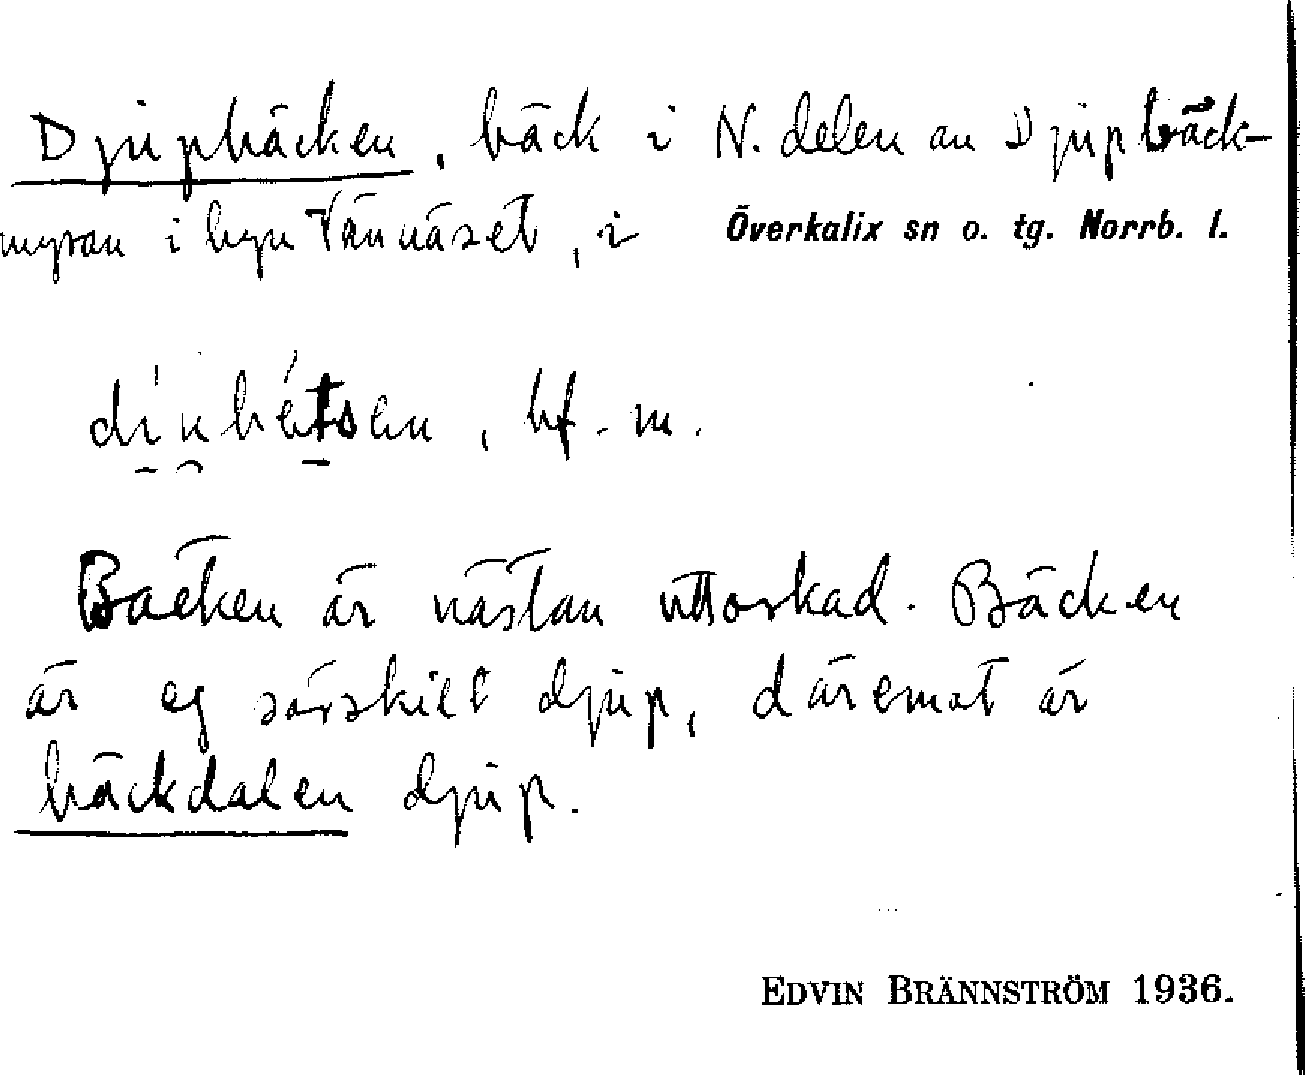 Djupbäcken, bäck i N. delen av Djupbäck-
myran i byn Vännäset, i Överkalix sn o. tg. Norrb. l.
, bf. m.
Bäcken är nästan uttorkad. Bäcken
är ej särskilt djup, däremot är
bäckdalen djup.
EDVIN BRÄNNSTRÖM 1936.